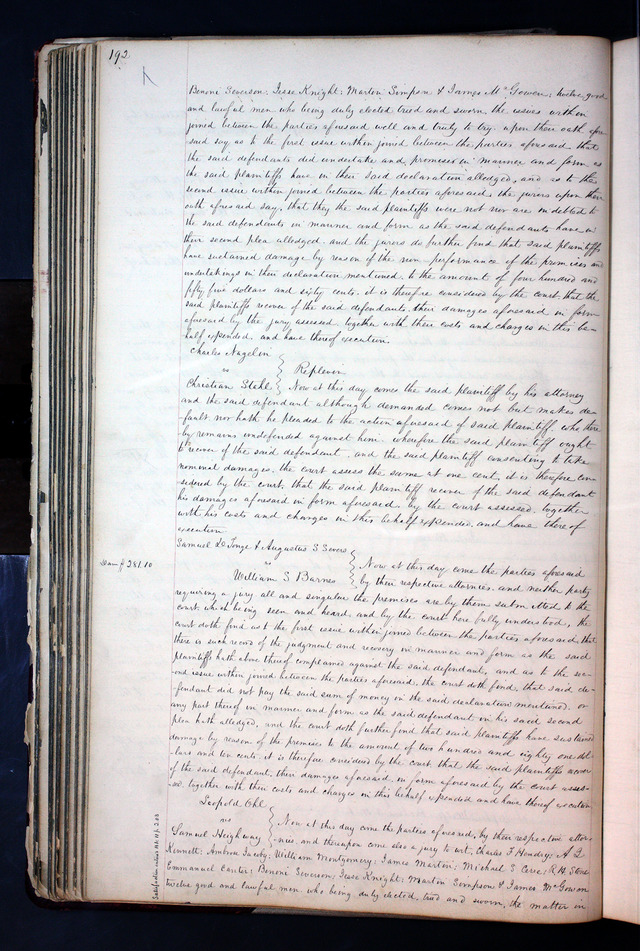 192
Benoni Severson; Jesse Knight; Marton Simpson & James McGowen; twelve good
and lawful men who being duly elected tried and sworn the issues within
joined between the parties aforesaid well and truly to try upon their oath afore
said say as to the first issue within joined between the parties aforesaid that
the said defendants did undertake and promise in manner and form as
the said plaintiffs have in their said declaration alledged, and as to the
second issue within joined between the parties aforesaid the jurors upon their
oath aforesaid say, that they the said plaintiffs were not nor are indebted to
the said defendants in manner and form as the said defendants have in
their second plea alledged and the jurors do further find that said plaintiffs
have sustained damage by reason of the non performance of the promises and
undertakings in their declaration mentioned to the amount of four hundred and
fifty five dollars and sixty cents. it is therefore considered by the court that the
said plaintiffs recover of the said defendants their damages aforesaid in form
aforesaid by the jury assessed together with their costs and charges in this be-
half expended, and have thereof execution.
Charles Nagelin
vs
Replevin
Christian Stall
Now at this day comes the said plaintiff by his attorney
and the said defendant although demanded comes not but makes de-
fault nor hath he pleaded to the action aforesaid of said plaintiff who there
by remains undefended against him. wherefore the said plaintiff ought
to recover of the said defendant, and the said plaintiff consenting to take
nominal damages, the court assess the same at one cent, it is therefore con
sidered by the court, that the said plaintiff recover of the said defendant
his damages aforesaid in form aforesaid by the court assessed together
with his costs and charges in this behalf expended and have thereof
execution
Samuel D Tonge & Augustus S Severs
vs
Now at this day come the parties aforesaid
Dam $281.10
William S Barnes
by their respective attornies and neither party
requiring a jury all and singular the premises are by them submitted to the
court which being seen and heard, and by the court here fully understood, the
court doth find as to the first issue within joined between the parties aforesaid, that
there is such record of the judgment and recovery in manner and form as the said
plaintiffs hath above thereof complained against the said defendants, and as to the sec-
ond issue within joined between the parties aforesaid, the court doth find, that said de-
fendant did not pay the said sum of money in the said declaration mentioned or
any part thereof in manner and form as the said defendant in his said second
plea hath alledged, and the court doth further find that said plaintiffs have sustained
damage by reason of the premises to the amount of two hundred and eighty one dol-
lars and ten cents it is therefore considered by the court that the said plaintiffs recover
of the said defendant their damages aforesaid in form aforesaid by the court assess-
ed, together with their costs and charges in this behalf expended and have thereof execution
Leopold Ohl
vs
Now at this day come the parties aforesaid, by their respective attor-
Samuel Heighway
nies and thereupon come also a jury to wit, Charles F Hendry; A Q
Kennett; Ambrose Jacoby; William Montgomery; James Martin; Michael S Cere; R H Stone
Emmanuel Canter; Benoni Severson; Jesse Knight; Marton Simpson & James McGowen
twelve good and lawful men who being duly elected, tried and sworn, the matter in